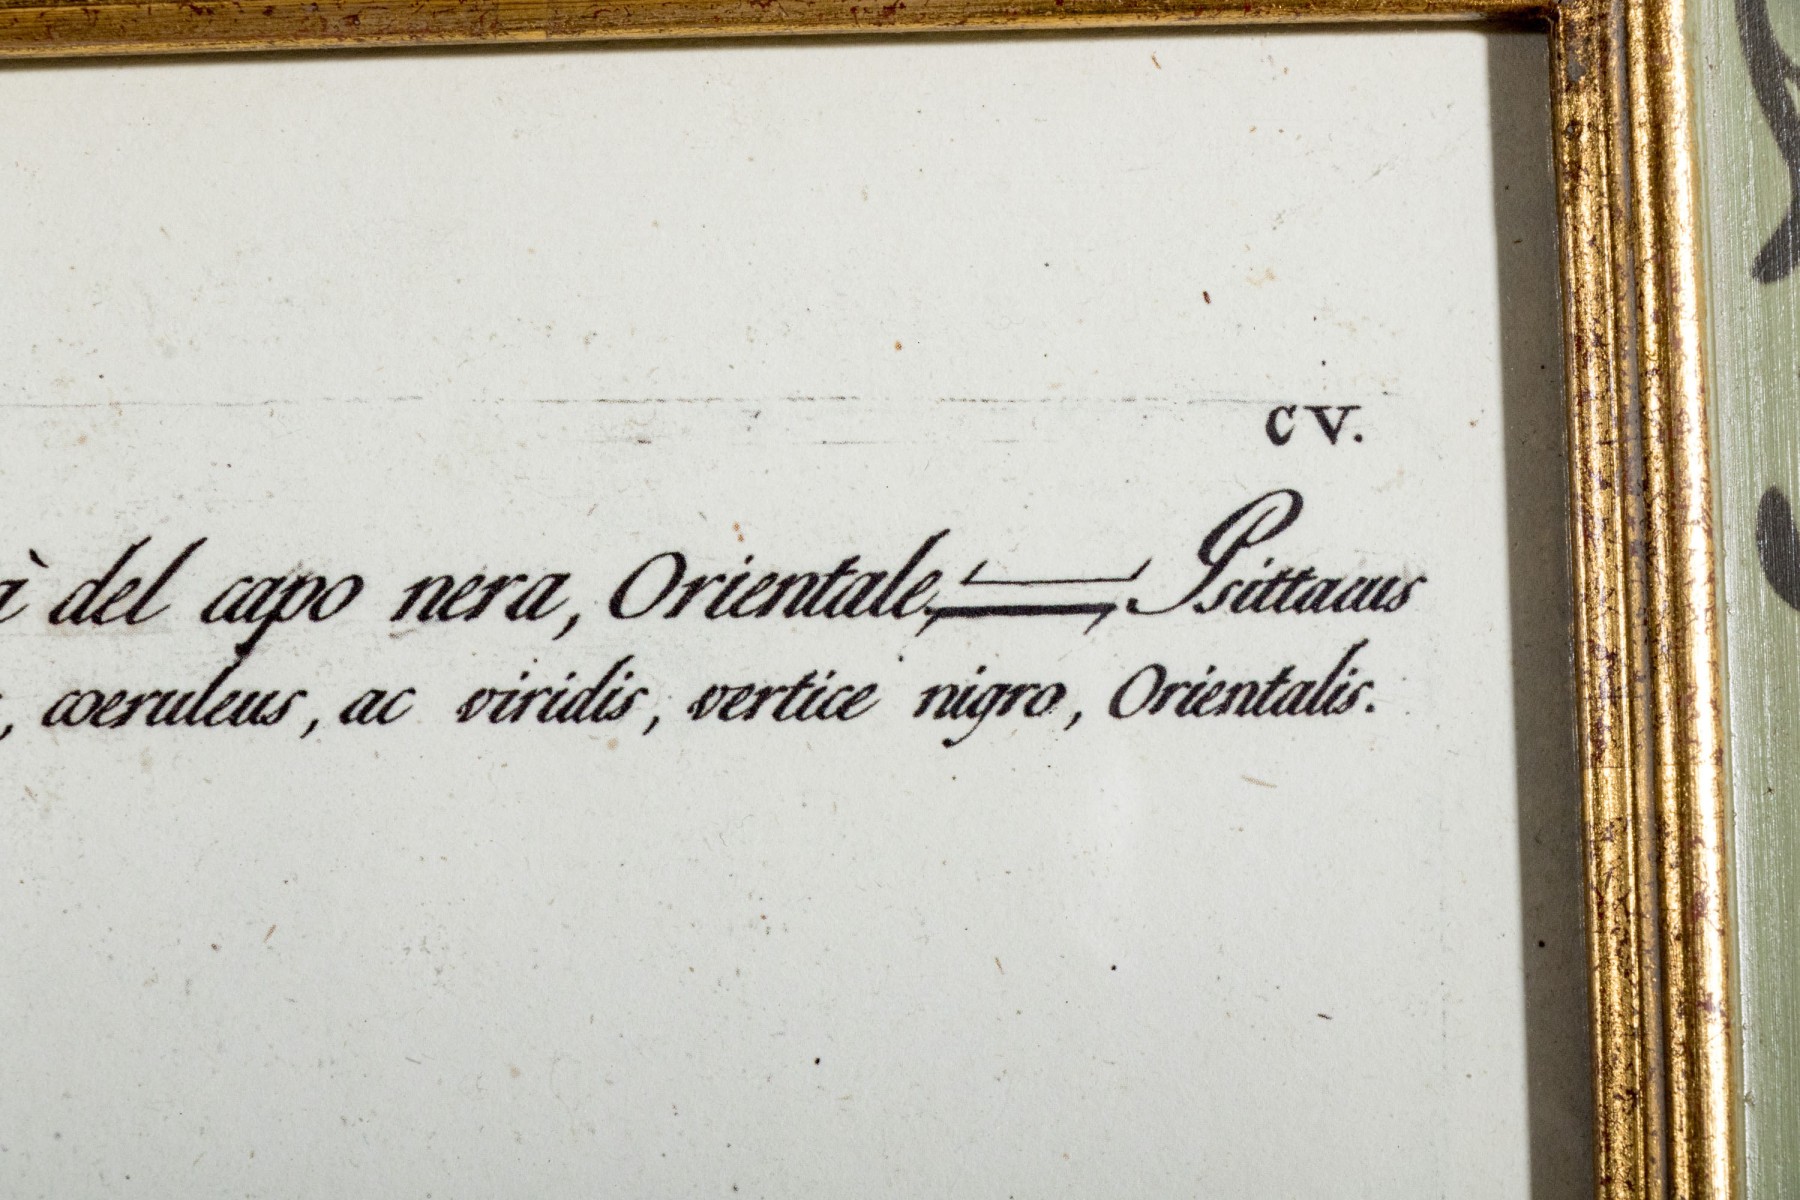 CV.
à del capo nera, Orientale. Psittacus
, coeruleus, ac viridis, vertice nigro, Orientalis.